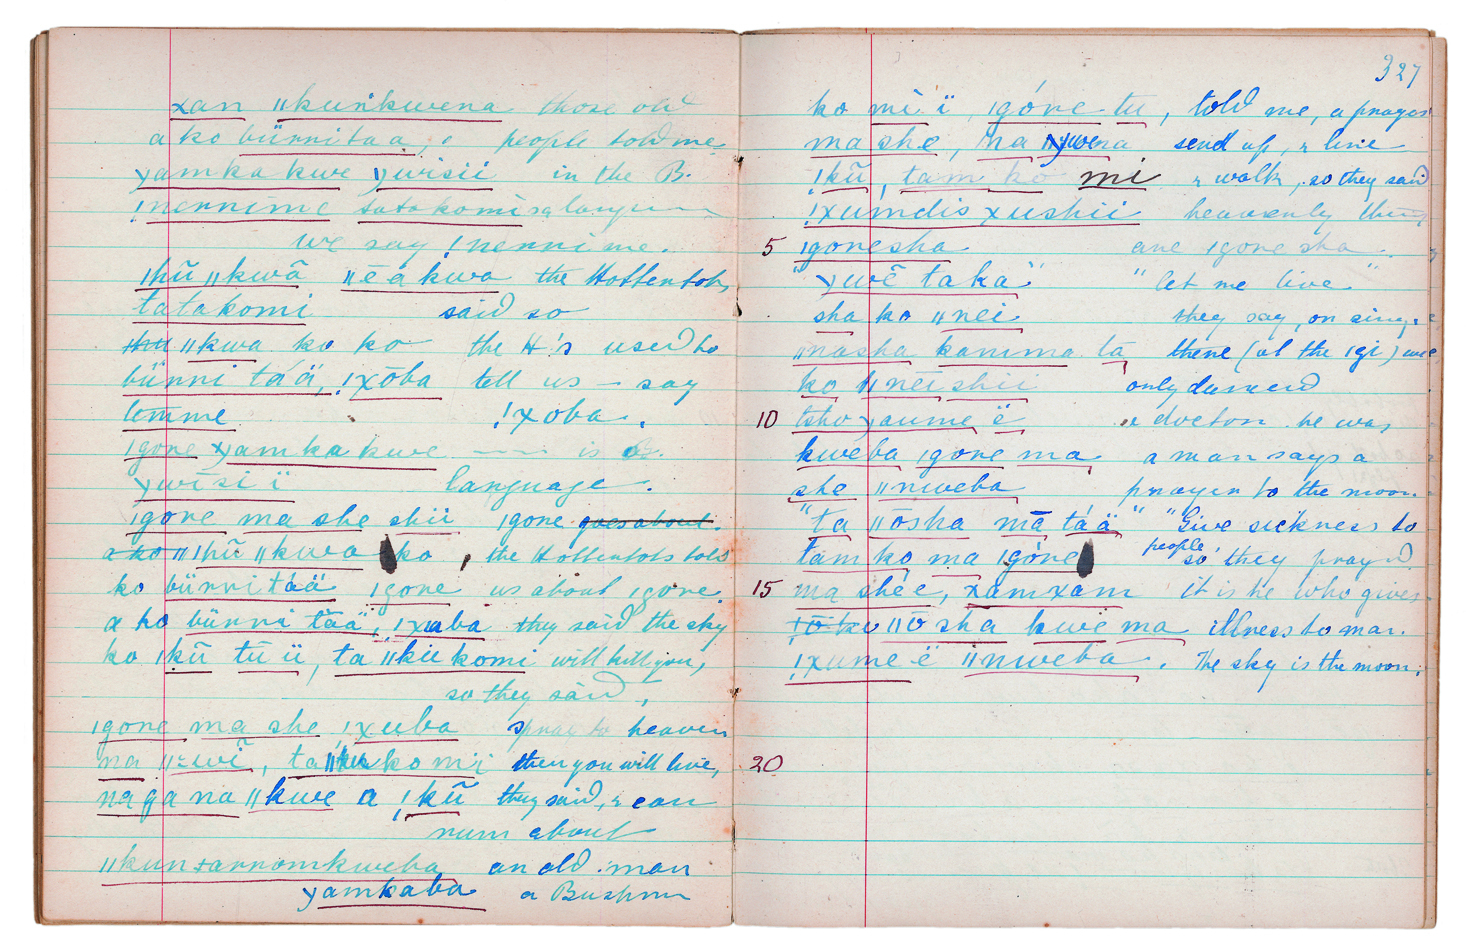 xan ǁkun̈kwena those old
a ko bünnitaa, e people told me
yamka kwe ywisii in the B.
!nennime tatakomi sq langu
we say !nennime.
ǀhũ ǁkwã ǁēakwa the Hottentots
tatakomi said so
ǁkwa ko ko the H's used to
bünni táä, !xōba tell us – say
temme !xoba.
ǀgone yamka kwe is B.
ywīsiï language.
ǀgone ma she shii ǀgone goes about.
a ko ǁhũ ǁkwa ko, the Hottentots told
ko bünnitáä ǀgone us about ǀgone.
a ko bünni tãä, !xuba they said the sky
ko ǀkū tu ü, ta ǁkü komi will kill you,
so they said,
ǀgone ma she !xuba pray to heaven
na komï then you will live,
na ga na ǁkwe a !kũ they said, & can
num about
ǁkunxannomkweba an old man
yamkaba a Bushm
327
ko mì ï, ǀgóne tu, told me, a prayer
ma she, na send up, & live
!kũ, tam ko mi & walk, so they said
!xumdis xushii heavenly thing
5 ǀgonesha are ǀgone sha.
"ywē taka" "let me live"
sha ko ǁnei they say, on sing.
ǁnasha kamma tã there (at the ǀgi) we
ko ǁnēishii only danced
10 tsho yaume ë & doctor he was
kweba ǀgone ma a man says a
she ǁnweba prayer to the moon.
"ta ǁōsha mā táä" "Give sickness to
people
tam ko ma ǀgóne so they prayed
15 ma shee, xamxam it is he who gives
ǁō sha kwe ma illness to man.
!xume ë ǁnweba. The sky is the moon.
20